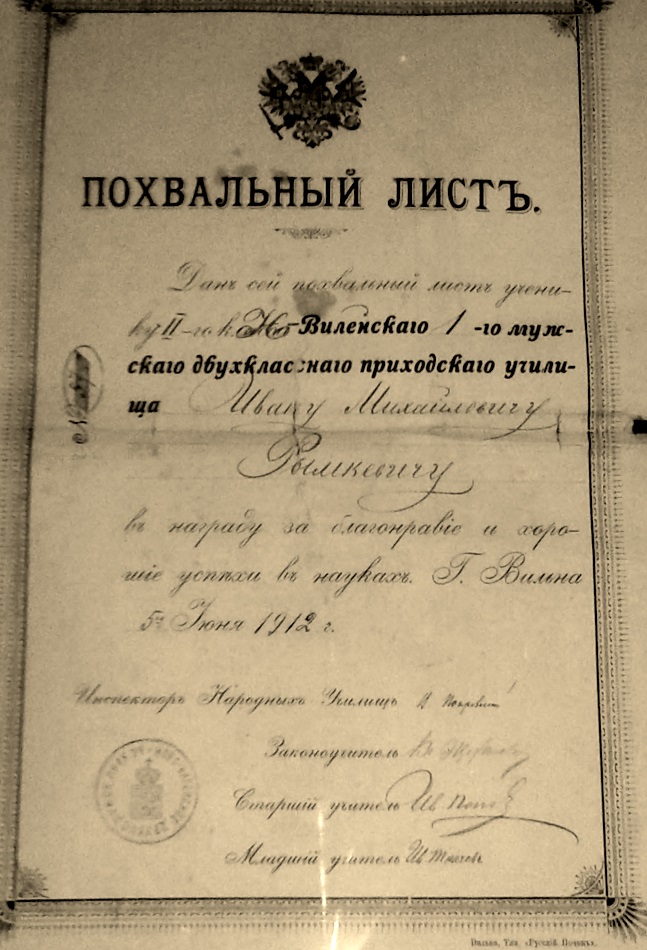 ПОХВАЛЬНЫЙ ЛИСТЪ.
Данъ сей похвальный листъ учени-
ку II-го Но-Виленскаго 1-го муж-
скаго двухкласснаго приходскаго учили-
ща Ивану Михайловичу
Рымкевичу
въ награду за благонравіе и хоро-
шіе успѣхи въ наукахъ. Г. Вильна
5го Іюня 1912 г.
Инспекторъ Народныхъ Училищъ
Законоучитель
Старшій учитель Ив
Младшій учитель Ив
Вильна, Тип. «Русскій Починъ».